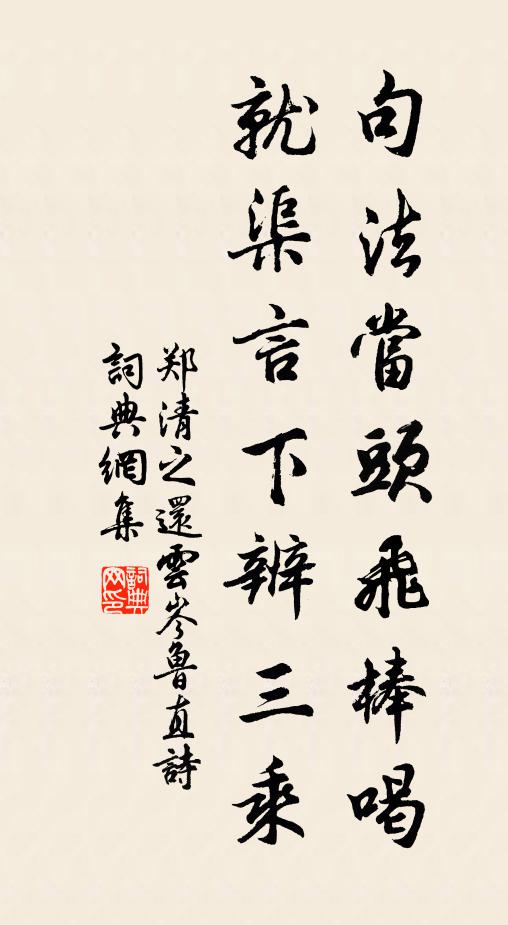 句法當頭飛棒喝
就渠言下辨三乘
郑清之還雲岑魯直詩
詞典網集
詞典網印